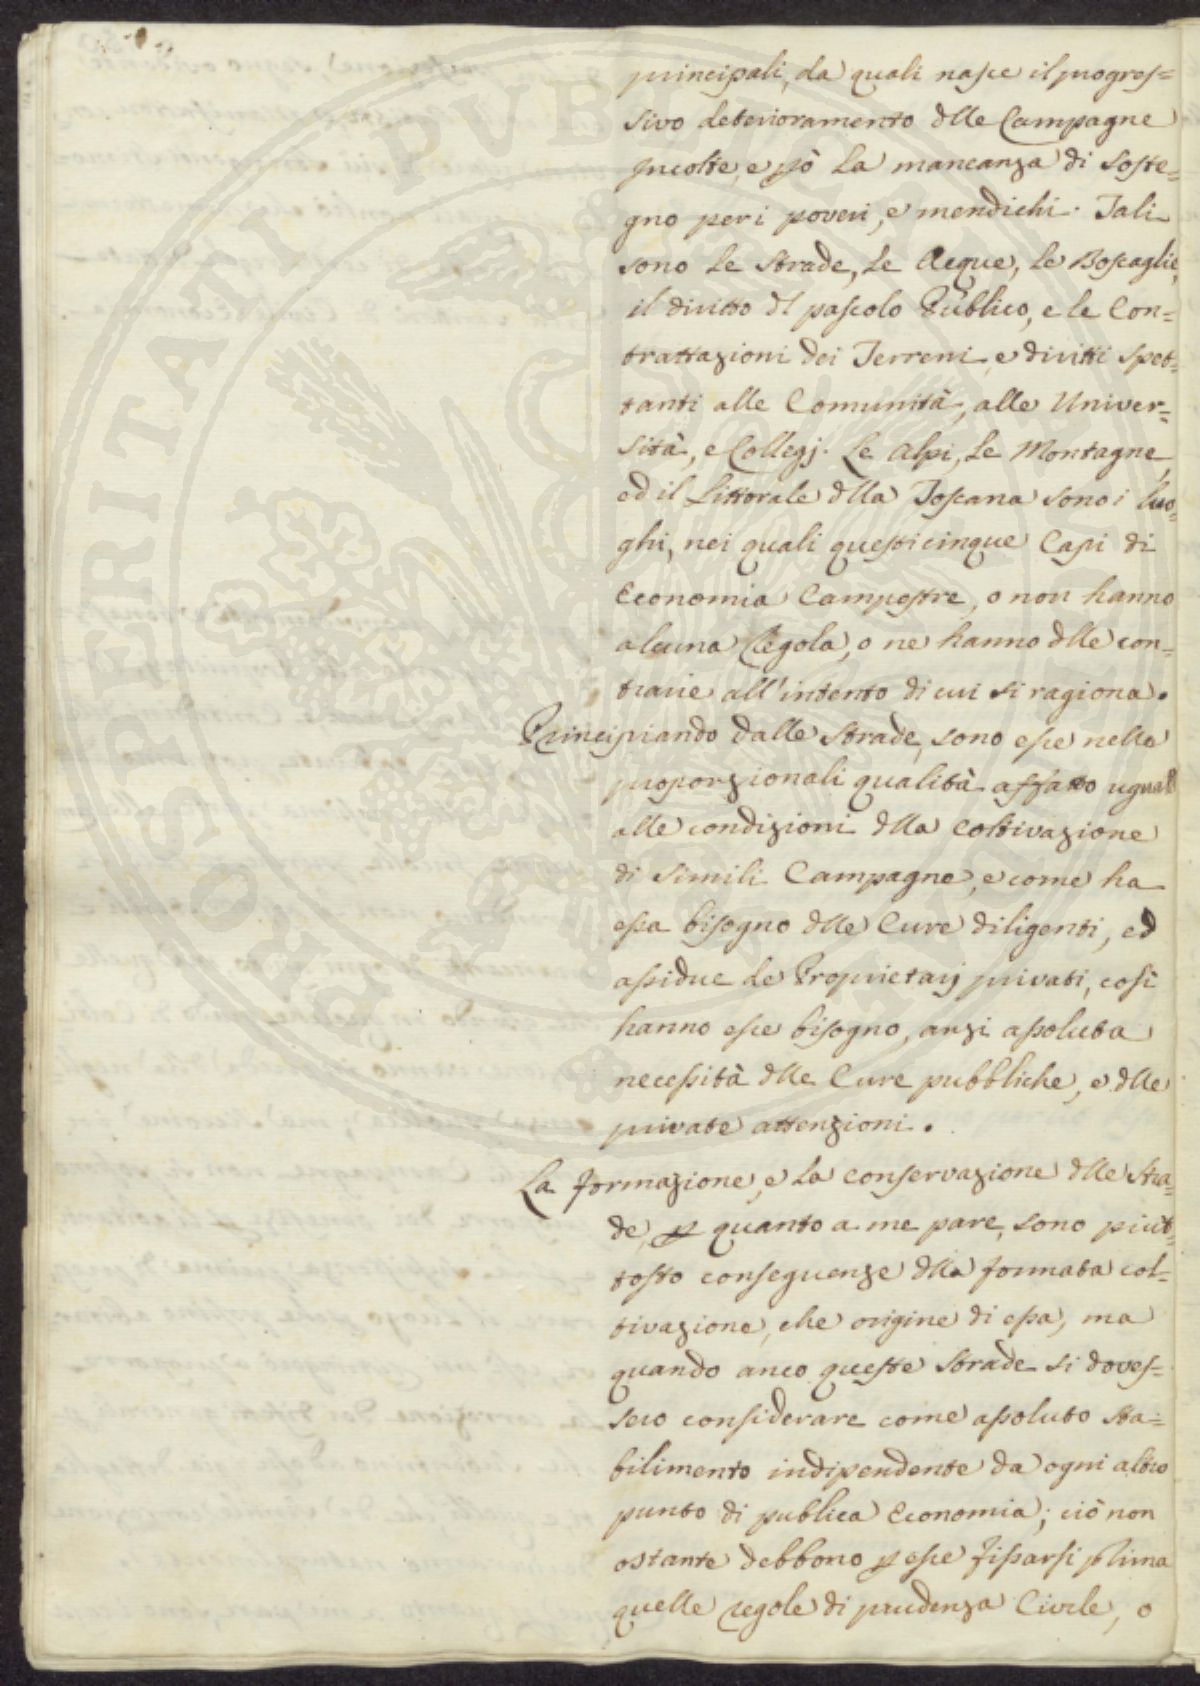 principali, da quali nasce il progres=
sivo deterioramento dlle Campagne
Incolte, e pò la mancanza di soste=
gno per i poveri, e mendichi. Tali
sono le strade, le Acque, le Boscaglie,
il diritto dl pascolo Publico, e le Con=
trattazioni dei Terreni, e diritti spet=
tanti alle Comunità, alle Univer=
sità, e Collegj. Le Alpi, le Montagne,
ed il Littorale dlla Toscana sono i luo=
ghi, nei quali questi cinque Capi di
Economia Campestre, o non hanno
alcuna Regola, o ne hanno dlle con=
trarie all'intento di cui si ragiona.
Principiando dalle strade, sono esse nelle
proporzionali qualità affatto uguali
alle condizioni dlla coltivazione
di simili Campagne, e come ha
essa bisogno dlle Cure diligenti, ed
assidue de Proprietarj privati, così
hanno esse bisogno, anzi assoluta
necessità dlle Cure pubbliche, e dlle
private attenzioni.
La formazione, e la conservazione dlle stra=
de, p quanto a me pare, sono piut=
tosto conseguenze dlla formata col=
tivazione, che origine di essa, ma
quando anco queste strade si doves=
sero considerare come assoluto sta=
bilimento indipendente da ogni altro
punto di publica Economia; ciò non
ostante debbono p esse fissarsi prima
quelle regole di prudenza Civile, o
PROSPERITATI PUBLICAE